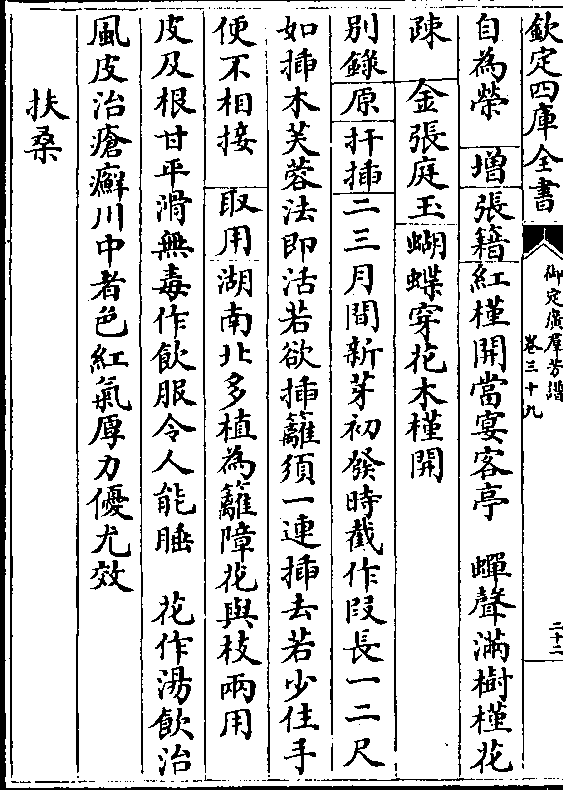 欽定四庫全書
御定廣羣芳譜
卷三十九
二十二
自為榮 增張籍紅槿開當宴客亭 蟬聲滿樹槿花
踈 金張庭玉蝴蝶穿花木槿開
別錄原扦揷二三月間新芽初發時截作段長一二尺
如揷木芙蓉法即活若欲揷籬須一連揷去若少住手
便不相接 取用湖南北多植為籬障花與枝兩用
皮及根甘平滑無毒作飲服令人能睡 花作湯飲治
風皮治瘡癬川中者色紅氣厚力優尤效
扶桑